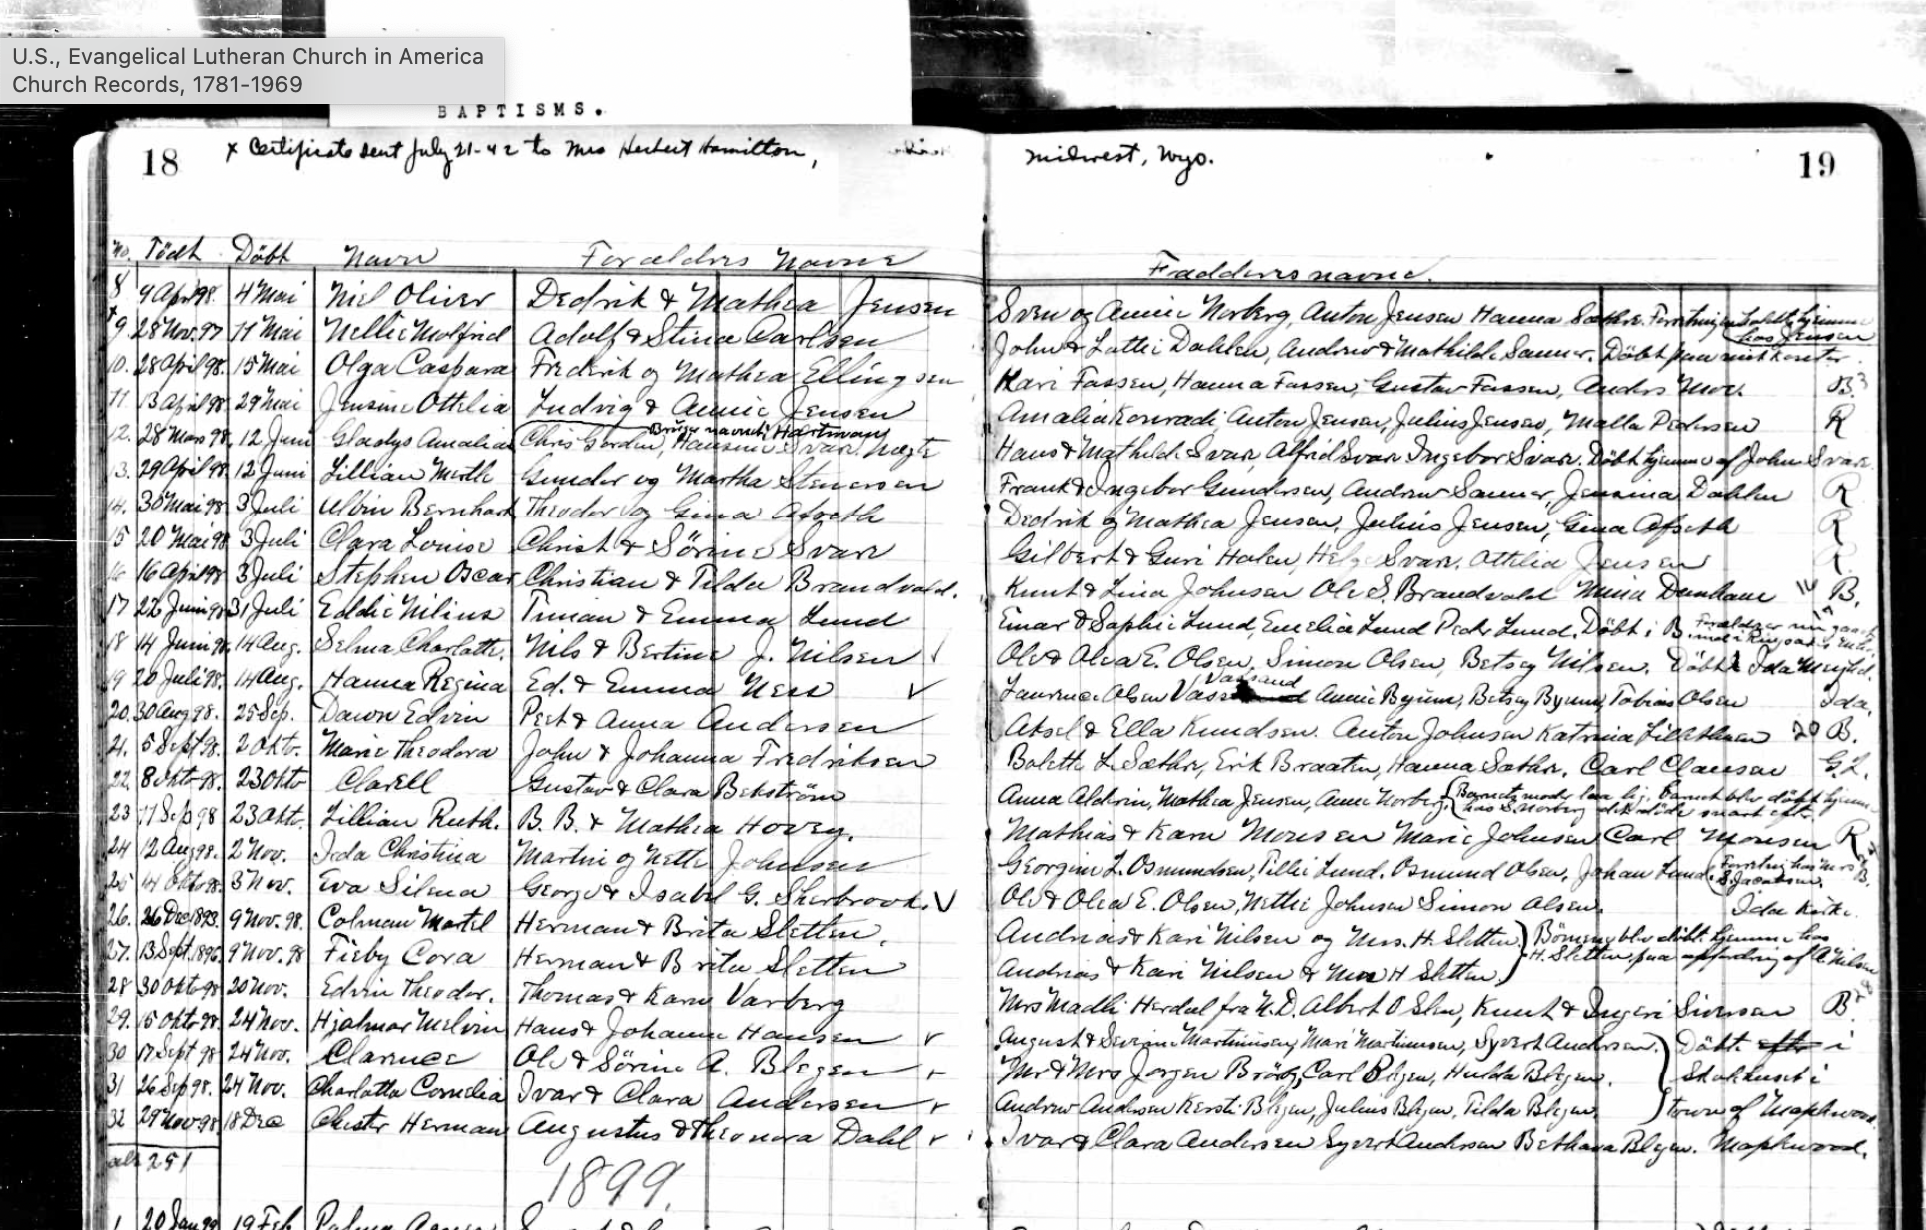 U.S., Evangelical Lutheran Church in America
Church Records, 1781-1969
BAPTISMS.
18 x Certificate sent July 21-42 to Mrs Herbert Hamilton, Midwest, Wyo. 19
No. Födt Döbt Navn Forældres Navne Fadderes navne.
8 9 Apr 98. 4 Mai Niel Oliver Dedrik & Mathea Jensen Sven og Annie Norberg, Anton Jensen Hanna Sæthre. hjemme
hos Jensen
x 9 28 Nov. 97 11 Mai Nellie Molfrid Adolf & Stina Carlsen John & Lottie Dahlen, Andrew & Mathilde Sanner. Döbt paa
10. 28 April 98. 15 Mai Olga Caspara Frederik og Mathea Ellingsen Kari Fossen, Hanna Fossen, Gustav Fossen, Anders Moe. B.
11. 13 April 98 29 Mai Jensine Ottelia Ludvig & Annie Jensen Amalia Konradi, Anton Jensen, Julius Jensen, Malla Pedersen R
Hartman
12. 28 Mars 98, 12 Juni Gladys Amalia Chris Gorden, Svar. Hans & Mathilde Svar, Alfred Svar Ingebor Svar. Döbt hjemme af John Svar.
13. 29 April 98. 12 Juni Lillian Merth Gunder og Martha Stenersen Frank & Ingebor Gundersen, Andrew Sanner, Jensina Dahlen R
14. 30 Mai 98 3 Juli Albin Bernhart Theodor og Gina Afseth Dedrik og Mathea Jensen, Julius Jensen, Gina Afseth R
15 20 Mai 98 3 Juli Clara Louise Christ & Sörine Svar Gilbert & Guri Holen, Helge Svar, Ottelia Jensen R.
16 16 April 98 3 Juli Stephen Oscar Christian & Tilda Brandvold. Knut & Lina Johnsen Ole S. Brandvold Mina Dunham B.
17 22 Juni 98 31 Juli Eddie Nilius Timan & Emma Lund Einar & Sophie Lund, Emelia Lund Peder Lund. Döbt i B.
18 14 Juni 98. 14 Aug. Selma Charlotte. Nils & Bertine J. Nilsen Ole & Olea E. Olsen, Simon Olsen, Betsey Nilsen. Döbt i Ida
Vassand
19 20 Juli 98. 14 Aug. Hanna Regina Ed. & Emma Ness Laurence Olsen Annie Byrum, Betsey Byrum, Tobias Olsen Ida.
20. 30 Aug 98. 25 Sep. Edvin Peet & Anna Andersen Aksel & Ella Knudsen. Anton Johnsen Katrina 20 B.
21. 5 Sept 98. 2 Okto. Marie Theodora John & Johanna Fredriksen Bolette L. Sæthre, Erik Braaten, Hanna Sæthre. Carl Clausen G.L.
22. 8 Okto 98. 23 Okto Clarell Gustav & Clara Bekström Anna Aldrin, Mathea Jensen, Anna Norberg. Barnets moder laa lig, barnet blev döbt hjemme
hos S. Norberg
23 11 Sep 98 23 Okto. Lillian Ruth. B. B. & Mathea Hovey. Mathias & Karn Monsen Marie Johnsen Carl Monsen R
24 12 Aug 98. 2 Nov. Ida Christina Martin og Nette Johnsen Georgine L. Osmundsen, Tillie Lund. Osmund Olsen, Johan Lund. hos Mrs
S. Jacobsen. B.
25 14 Okto 98. 3 Nov. Eva Silena George & Isabel G. Sherbrook. Ole & Olea E. Olsen, Nettie Johnsen Simon Olsen. Ida Kirke.
26. 26 Dec 1893. 9 Nov. 98. Colman Martel Herman & Brita Sletten. Andreas & Kari Nilsen og Mrs. H. Sletten. Börnene blev döbt hjemme hos
27. 13 Sept. 1896. 9 Nov. 98 Fieby Cora Herman & Brita Sletten Andreas & Kari Nilsen & Mrs H Sletten. H. Sletten paa af A. Nilsen
28 30 Okto 98 20 Nov. Edvin Theodor. Thomas & Karn Varberg Mrs Madli Herdal fra N.D. Albert Olsen, Knut & Ingeri Siversen B
29. 15 Okto 98. 24 Nov. Hjalmar Melvin Hans & Johanna Hansen August & Severine Martinusen, Mari Martinusen, Syvert Andersen. Döbt i
30 17 Sept 98 24 Nov. Clarence Ole & Sörine A. Blegen Mr & Mrs Jorgen Carl Blegen, Hulda Blegen. skolhuset i
31 26 Sep 98. 24 Nov. Charlotta Cornelia Ivar & Clara Andersen Andrew Andersen Kersti Blegen, Julius Blegen, Tilda Blegen town of Maplewood
32 29 Nov 98 18 Dec Chester Herman Augustus & Theonora Dahl Ivar & Clara Andersen Syvert Andersen Bethana Blegen. Maplewood.
251
1899.
1 20 Jan 99 19 Feb Palma Agnes